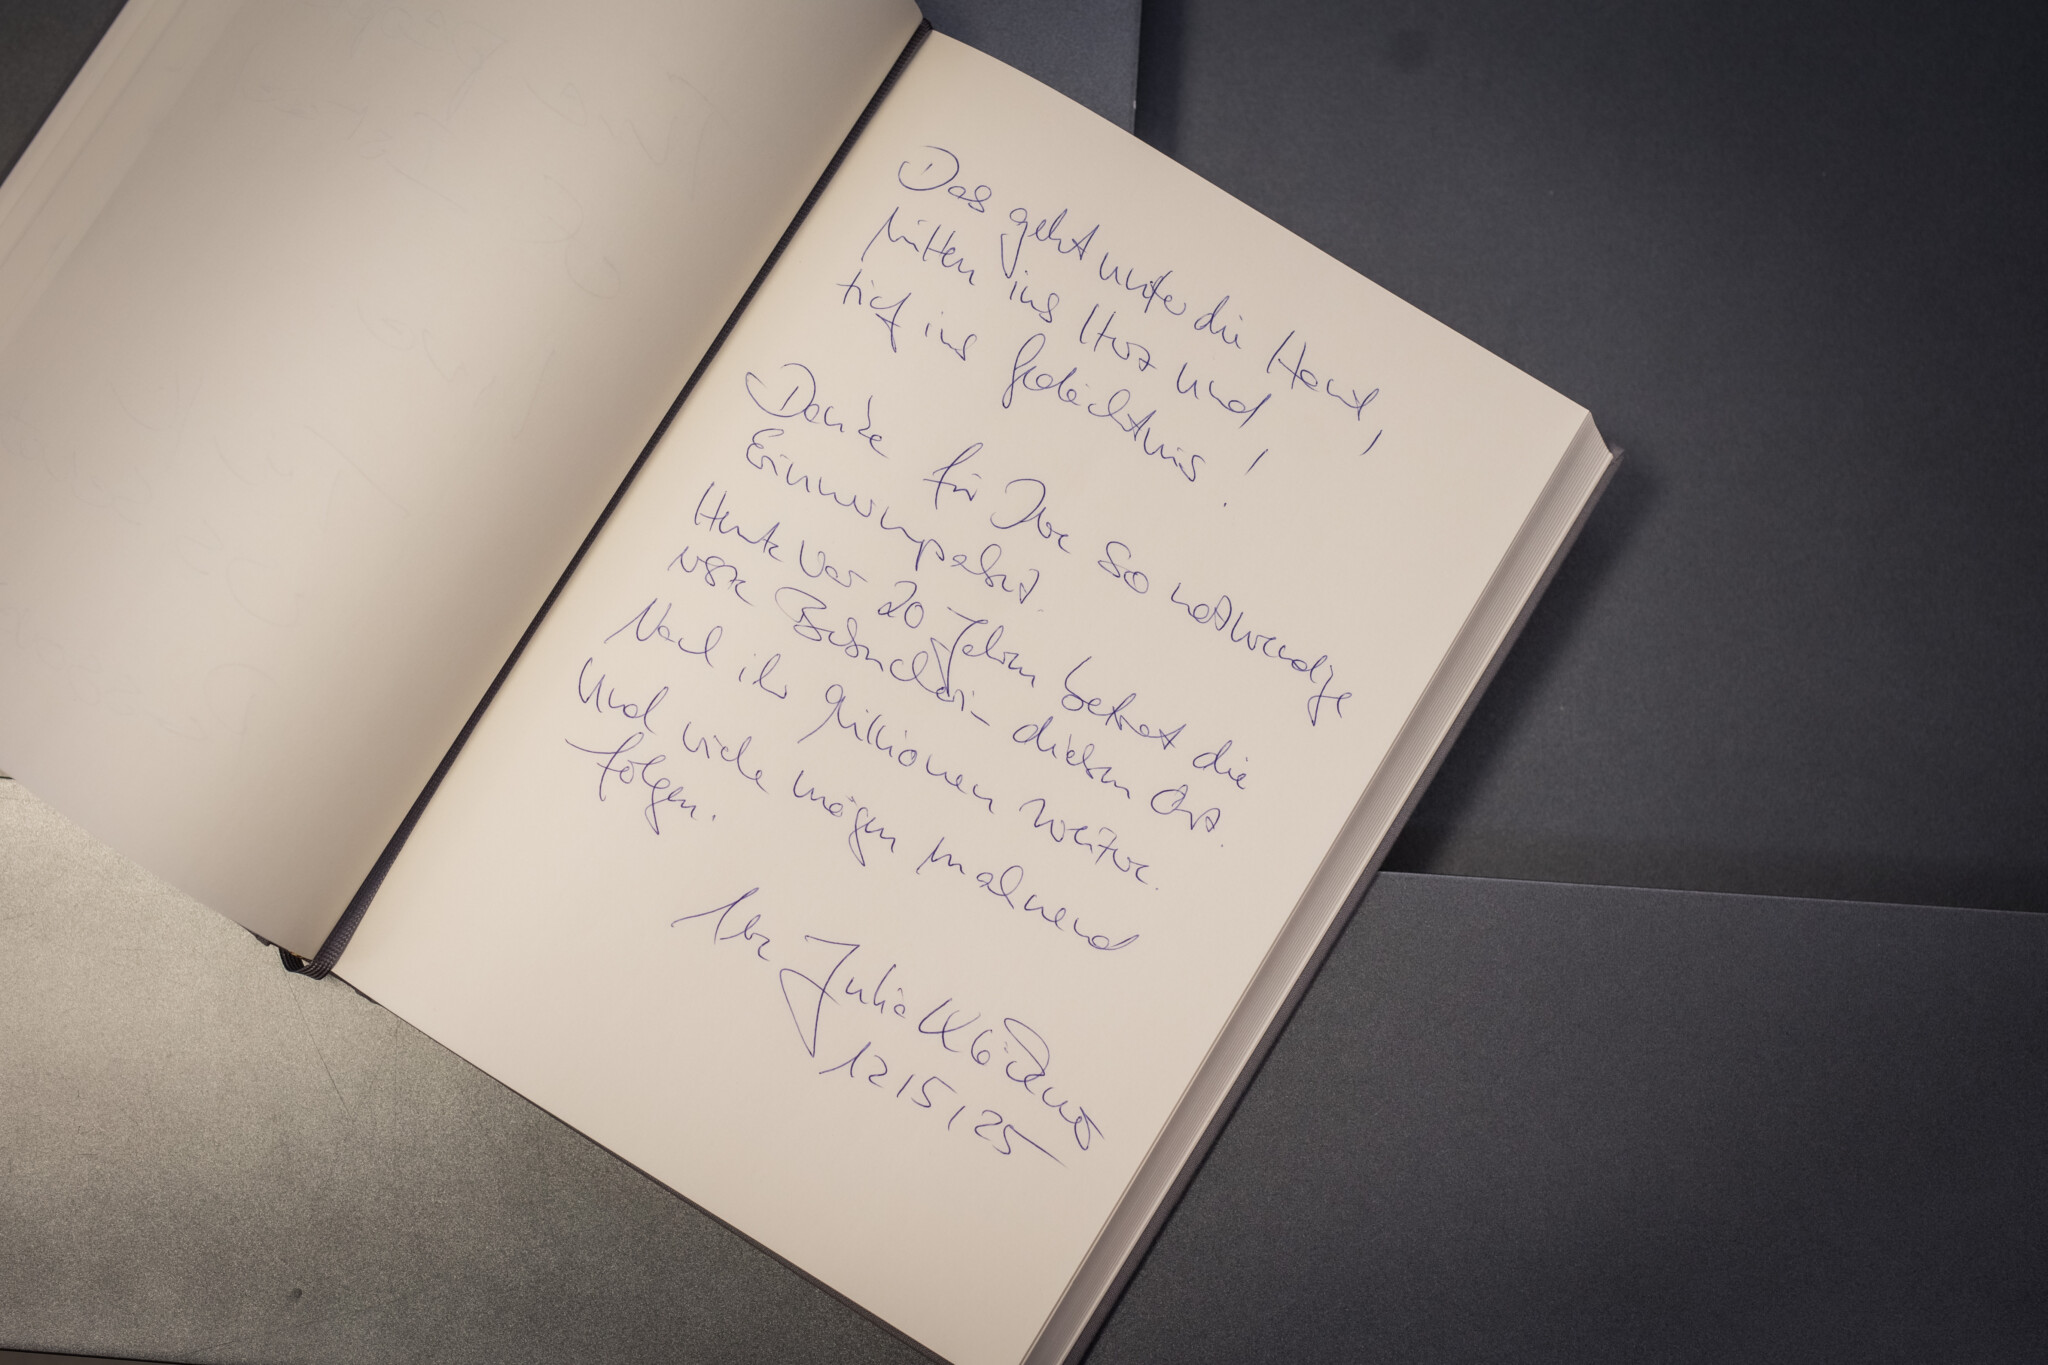 Das geht unter die Haut,
Mitten ins Herz und
tief ins Gedächtnis!
Danke für Ihre so notwendige
Erinnerungsarbeit.
Heute vor 20 Jahren betrat die
erste Besucherin diesen Ort.
Nach ihr Millionen weitere.
Und viele mögen mahnend
folgen.
Ihre Julia Klöckner
12/5/25